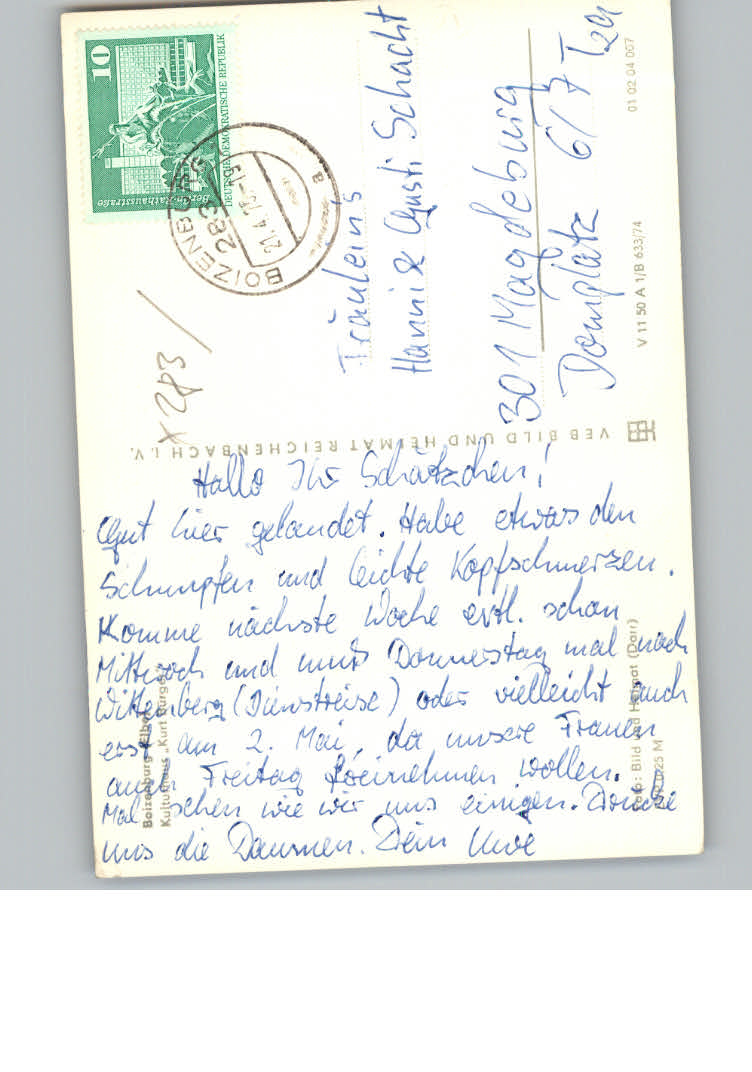 10
DEUTSCHE DEMOKRATISCHE REPUBLIK
Berlin-Rathausstraße
BOIZENBURG
283
21.4.75-15
a
x 283 /
Fräuleins
Hanni & Gusti Schacht
301 Magdeburg
Domplatz 6/7
01 02 04 007
V 11 50 A 1/B 633/74
VEB BILD UND HEIMAT REICHENBACH I.V.
Hallo Ihr Schätzchen!
Gut hier gelandet. Habe etwas den
Schnupfen und leichte Kopfschmerzen.
Komme nächste Woche evtl. schon
Mittwoch und muß Donnerstag mal nach
Wittenberg (Dienstreise) oder vielleicht auch
erst am 2. Mai, da unsere Frauen
am Freitag freinehmen wollen.
Mal sehen wie wir uns einigen. Drücke
uns die Daumen. Dein Uwe
Boizenburg (Elbe)
Kulturhaus „Kurt Bürger“
Foto: Bild und Heimat (Darr)